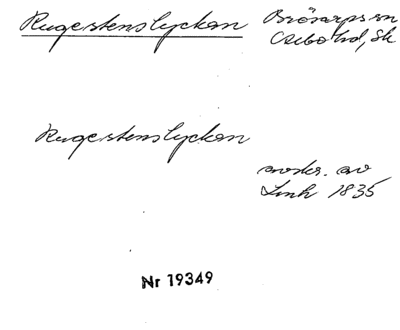 Rugestenslyckan Brösarps sn
Albo hd, Sk
Rugestenslyckan
avskr. av
Lmk 1835
Nr 19349